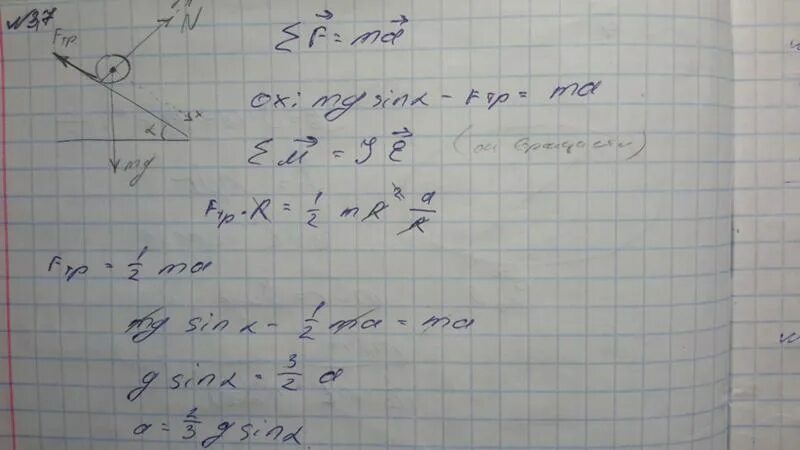 №3,7
Fтр.
N
x
α
mg
Σ F⃗ = ma⃗
ox: mg sinα - Fтр = ma
Σ M⃗ = J ε⃗
Fтр·R = 1/2 mR² a/R
Fтр = 1/2 ma
mg sinα - 1/2 ma = ma
g sinα = 3/2 a
a = 2/3 g sinα